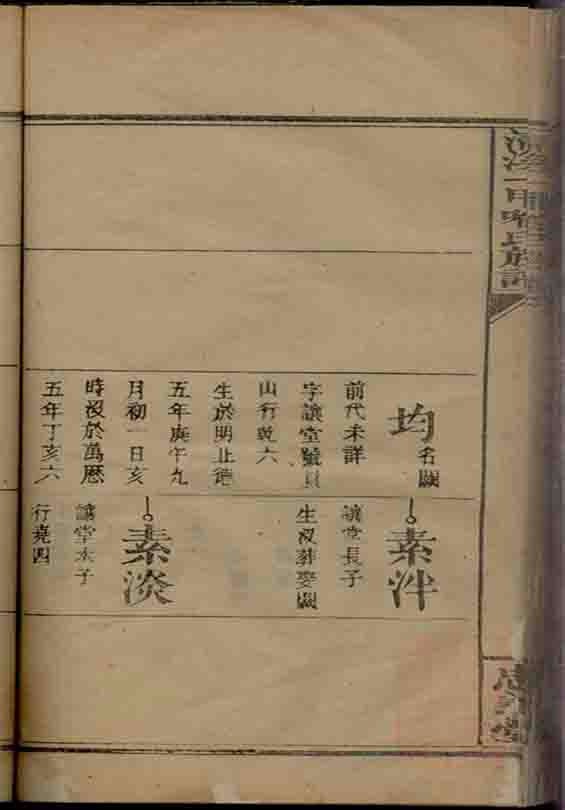 均 名闕
前代未詳
字讓堂號貝
山行乾六
生於明正德
五年庚午九
月初一日亥
時沒於萬歷
五年丁亥六
素泮
讓堂長子
生沒葬娶闕
素淡
讓堂次子
行堯四